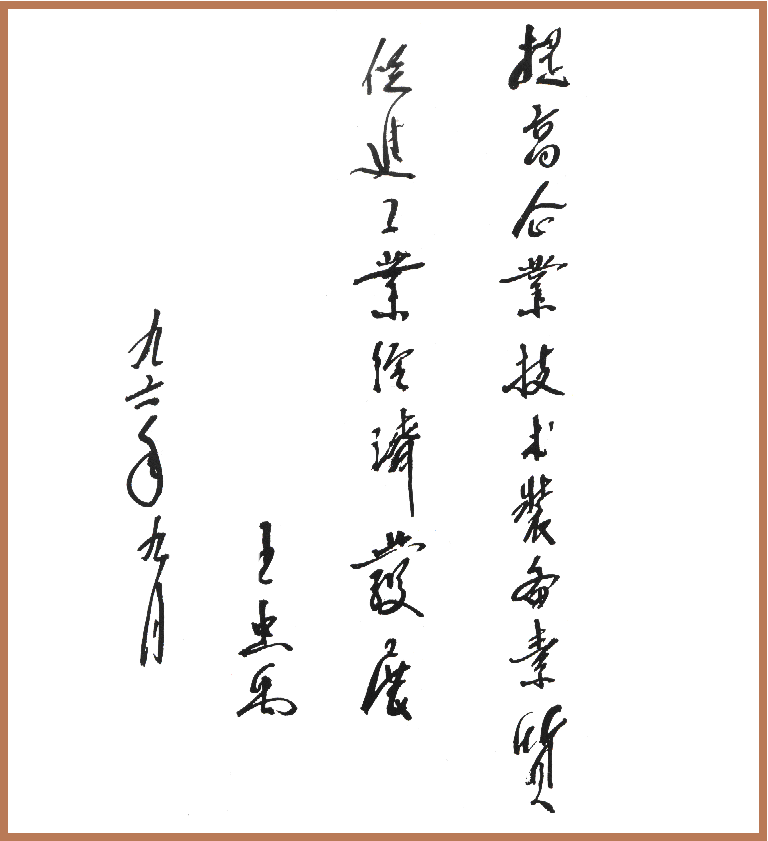 提高企業技术装备素質
促進工業经濟發展
王忠禹
九六年九月